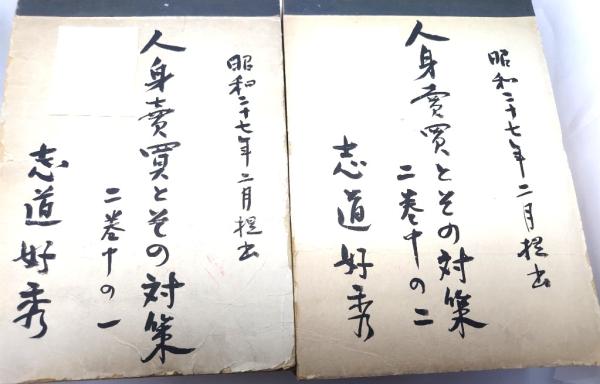 昭和二十七年二月提出
人身賣買とその対策
二巻中の一
志道好秀
昭和二十七年二月提出
人身賣買とその対策
二巻中の二
志道好秀